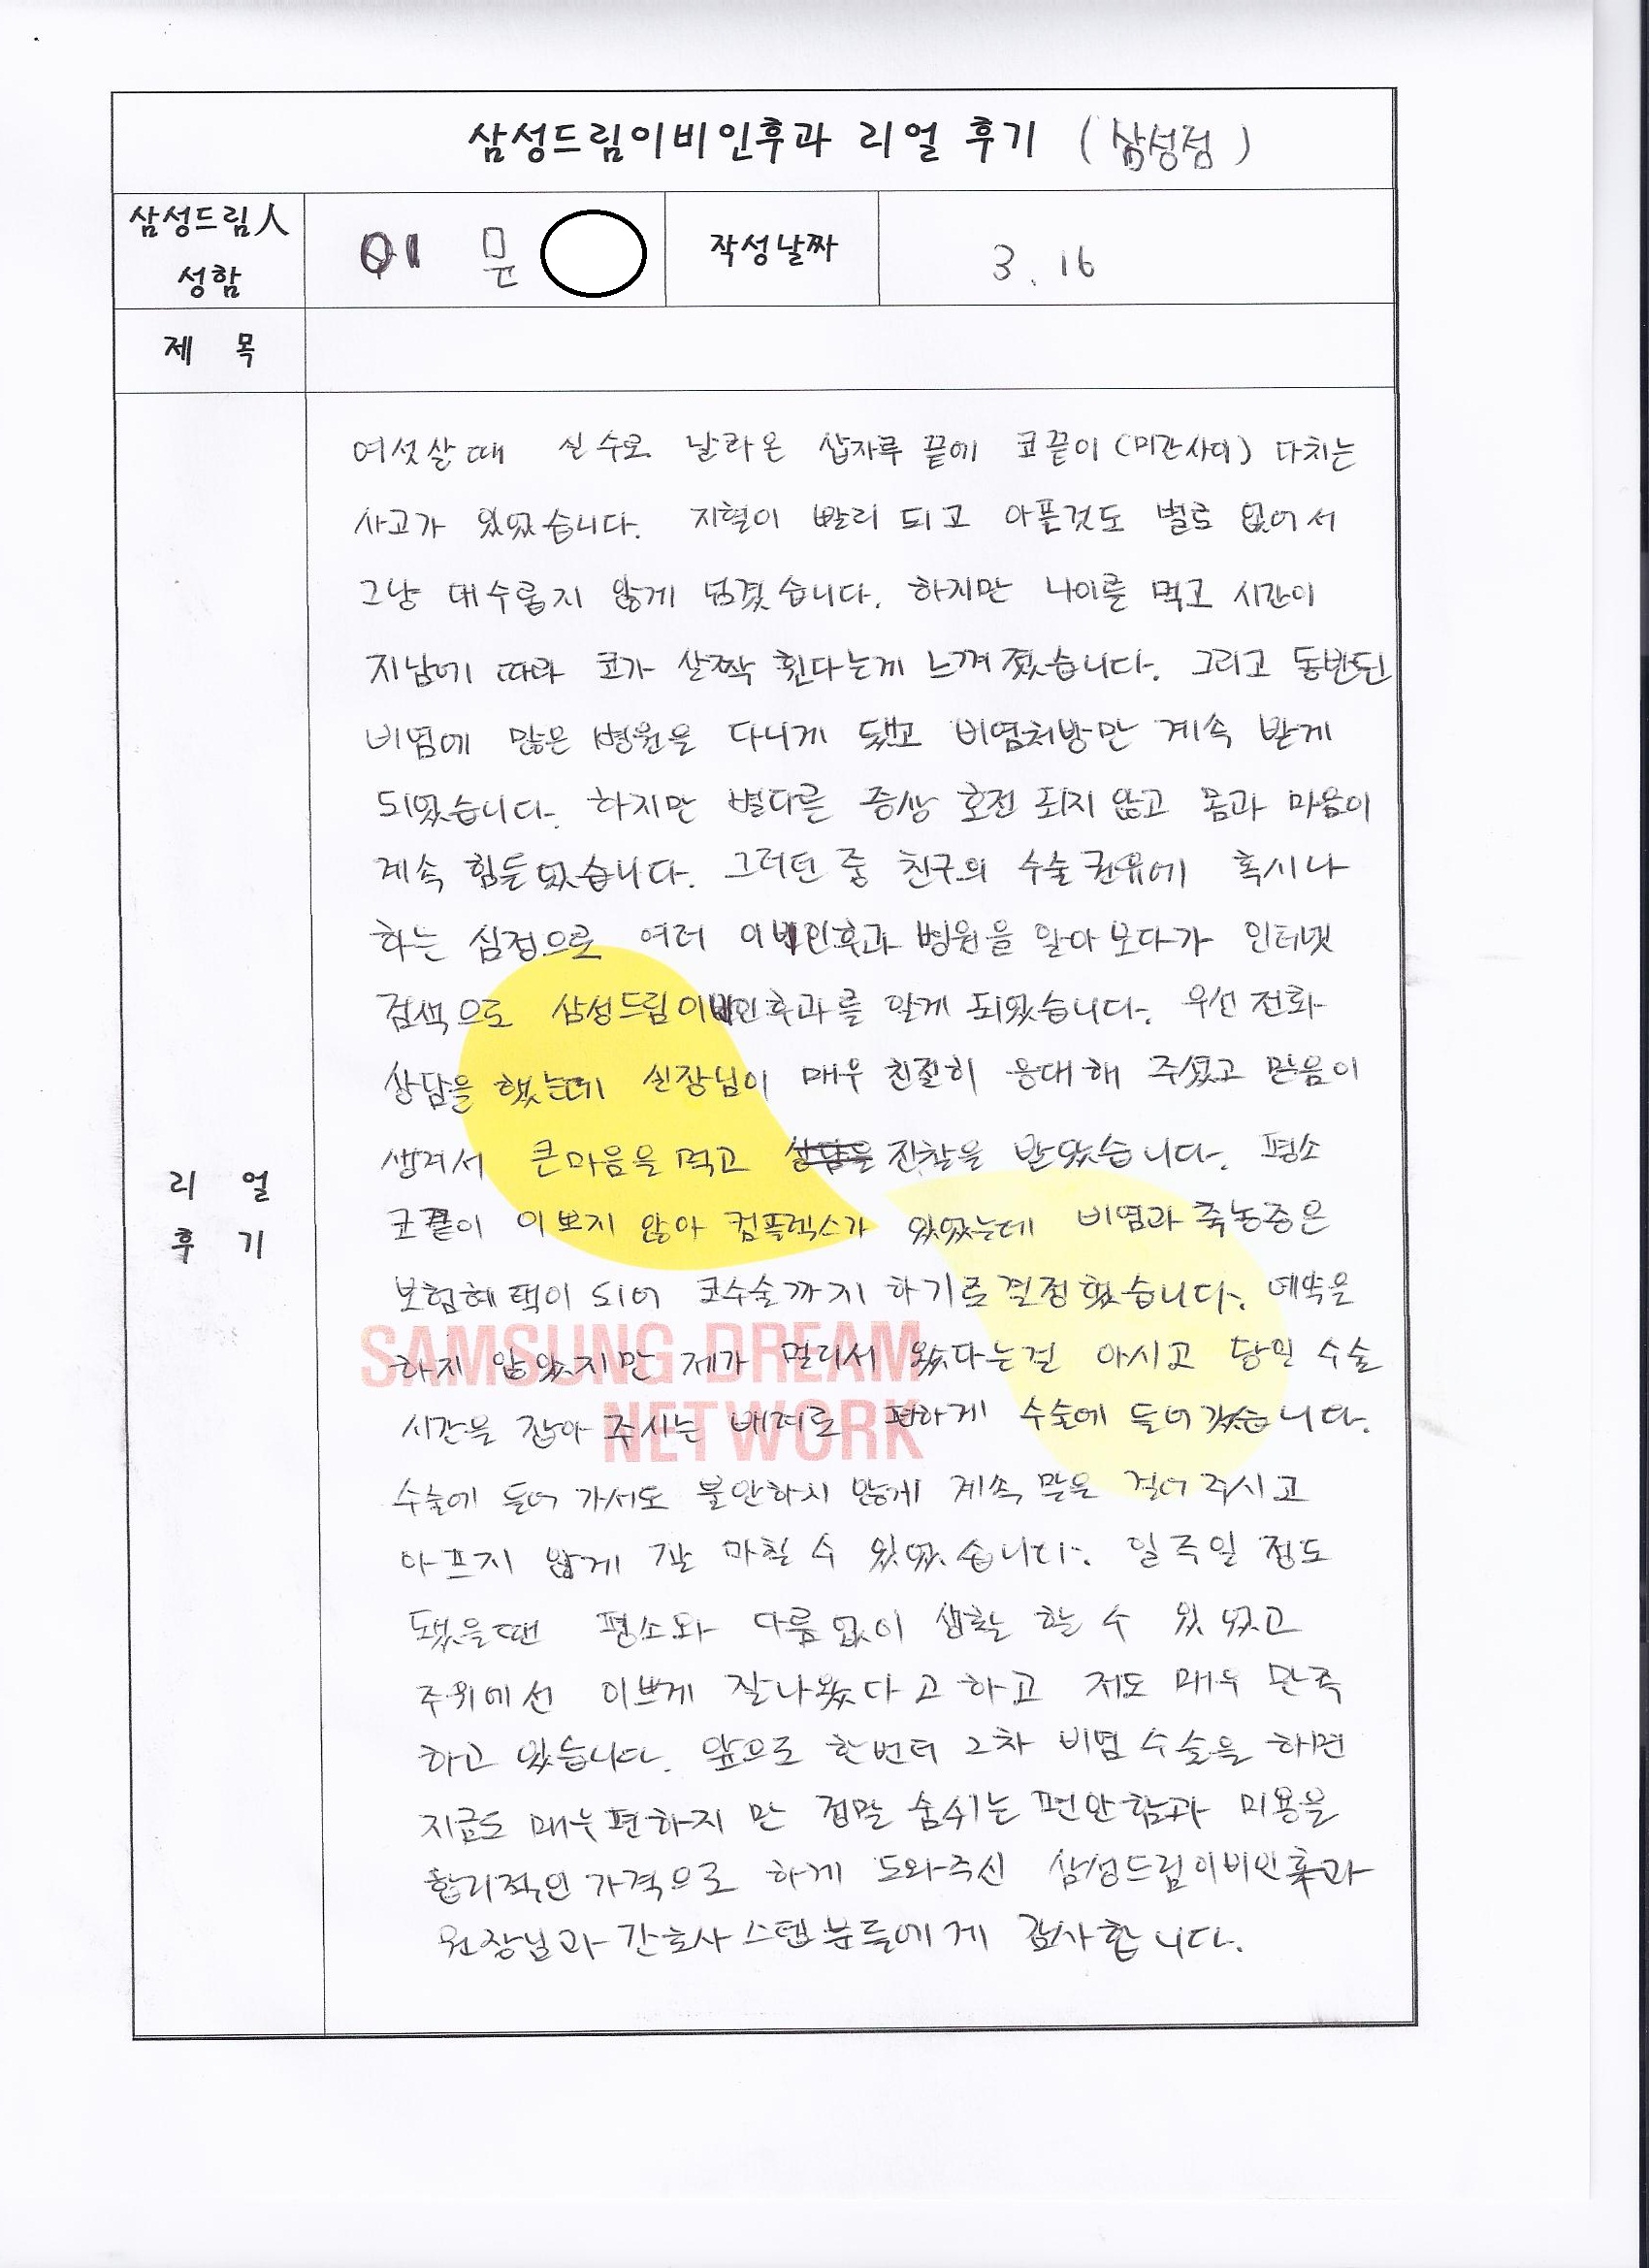 삼성드림이비인후과 리얼 후기 (삼성점)
삼성드림人 성함
이 문
작성날짜
3. 16
제 목
리 얼
후 기
여섯살때 실수로 날라온 삽자루 끝에 코끝이 (미간사이) 다치는
사고가 있었습니다. 지혈이 빨리 되고 아픈것도 별로 없어서
그냥 대수롭지 않게 넘겼습니다. 하지만 나이를 먹고 시간이
지남에 따라 코가 살짝 휜다는게 느껴졌습니다. 그리고 동반된
비염에 많은 병원을 다니게 됐고 비염처방만 계속 받게
되었습니다. 하지만 별다른 증상 호전 되지 않고 몸과 마음이
계속 힘들었습니다. 그러던 중 친구의 수술 권유에 혹시나
하는 심정으로 여러 이비인후과 병원을 알아보다가 인터넷
검색으로 삼성드림이비인후과를 알게 되었습니다. 우선 전화
상담을 했는데 실장님이 매우 친절히 응대해 주셨고 믿음이
생겨서 큰마음을 먹고 상담을 진찰을 받았습니다. 평소
코끝이 이쁘지 않아 컴플렉스가 있었는데 비염과 축농증은
보험혜택이 되어 코수술까지 하기로 결정했습니다. 예약은
하지 않았지만 제가 멀리서 왔다는걸 아시고 당일 수술
시간을 잡아 주시는 배려로 편하게 수술에 들어갔습니다.
수술에 들어가서도 불안하시 않게 계속 말을 걸어 주시고
아프지 않게 잘 마칠 수 있었습니다. 일주일 정도
됐을땐 평소와 다름없이 생활 할 수 있었고
주위에선 이쁘게 잘나왔다고 하고 저도 매우 만족
하고 있습니다. 앞으로 한번더 2차 비염 수술을 하면
지금도 매우편하지 만 정말 숨쉬는 편안함과 미용을
합리적인 가격으로 하게 도와주신 삼성드림이비인후과
원장님과 간호사 스텝분들에게 감사합니다.
SAMSUNG DREAM
NETWORK